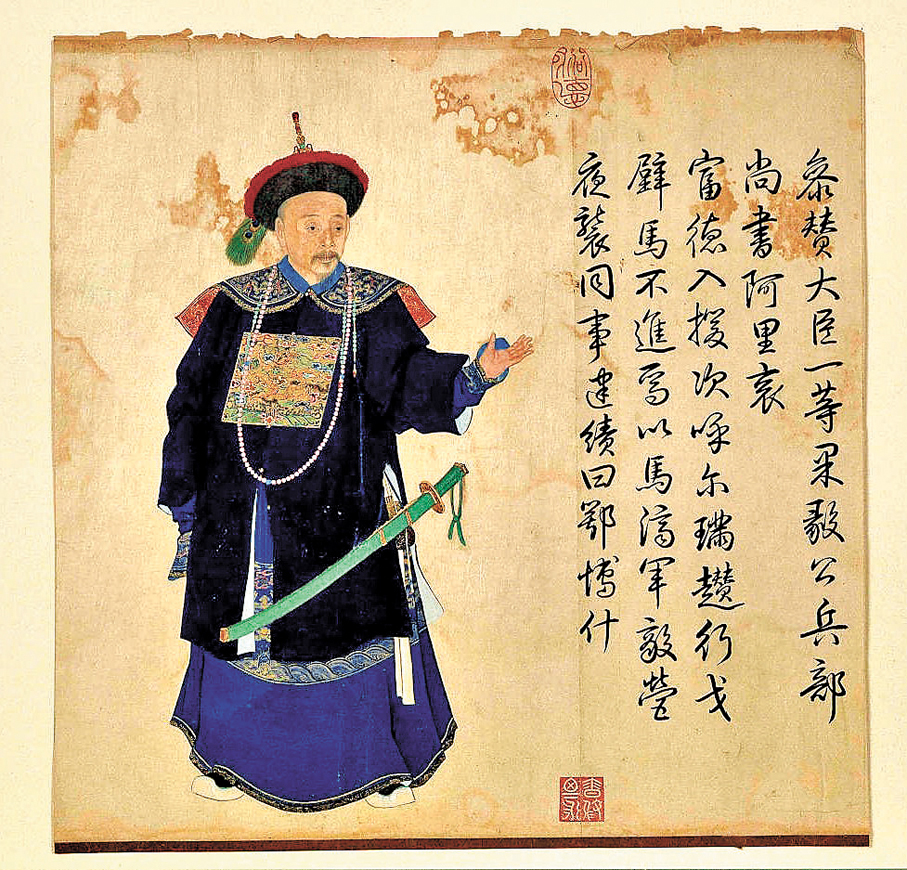 參贊大臣一等果毅公兵部
尚書阿里袞
富德入援次呼尔璊趱行戈
壁馬不進焉以馬濟軍敵營
夜襲同事建績曰鄂博什